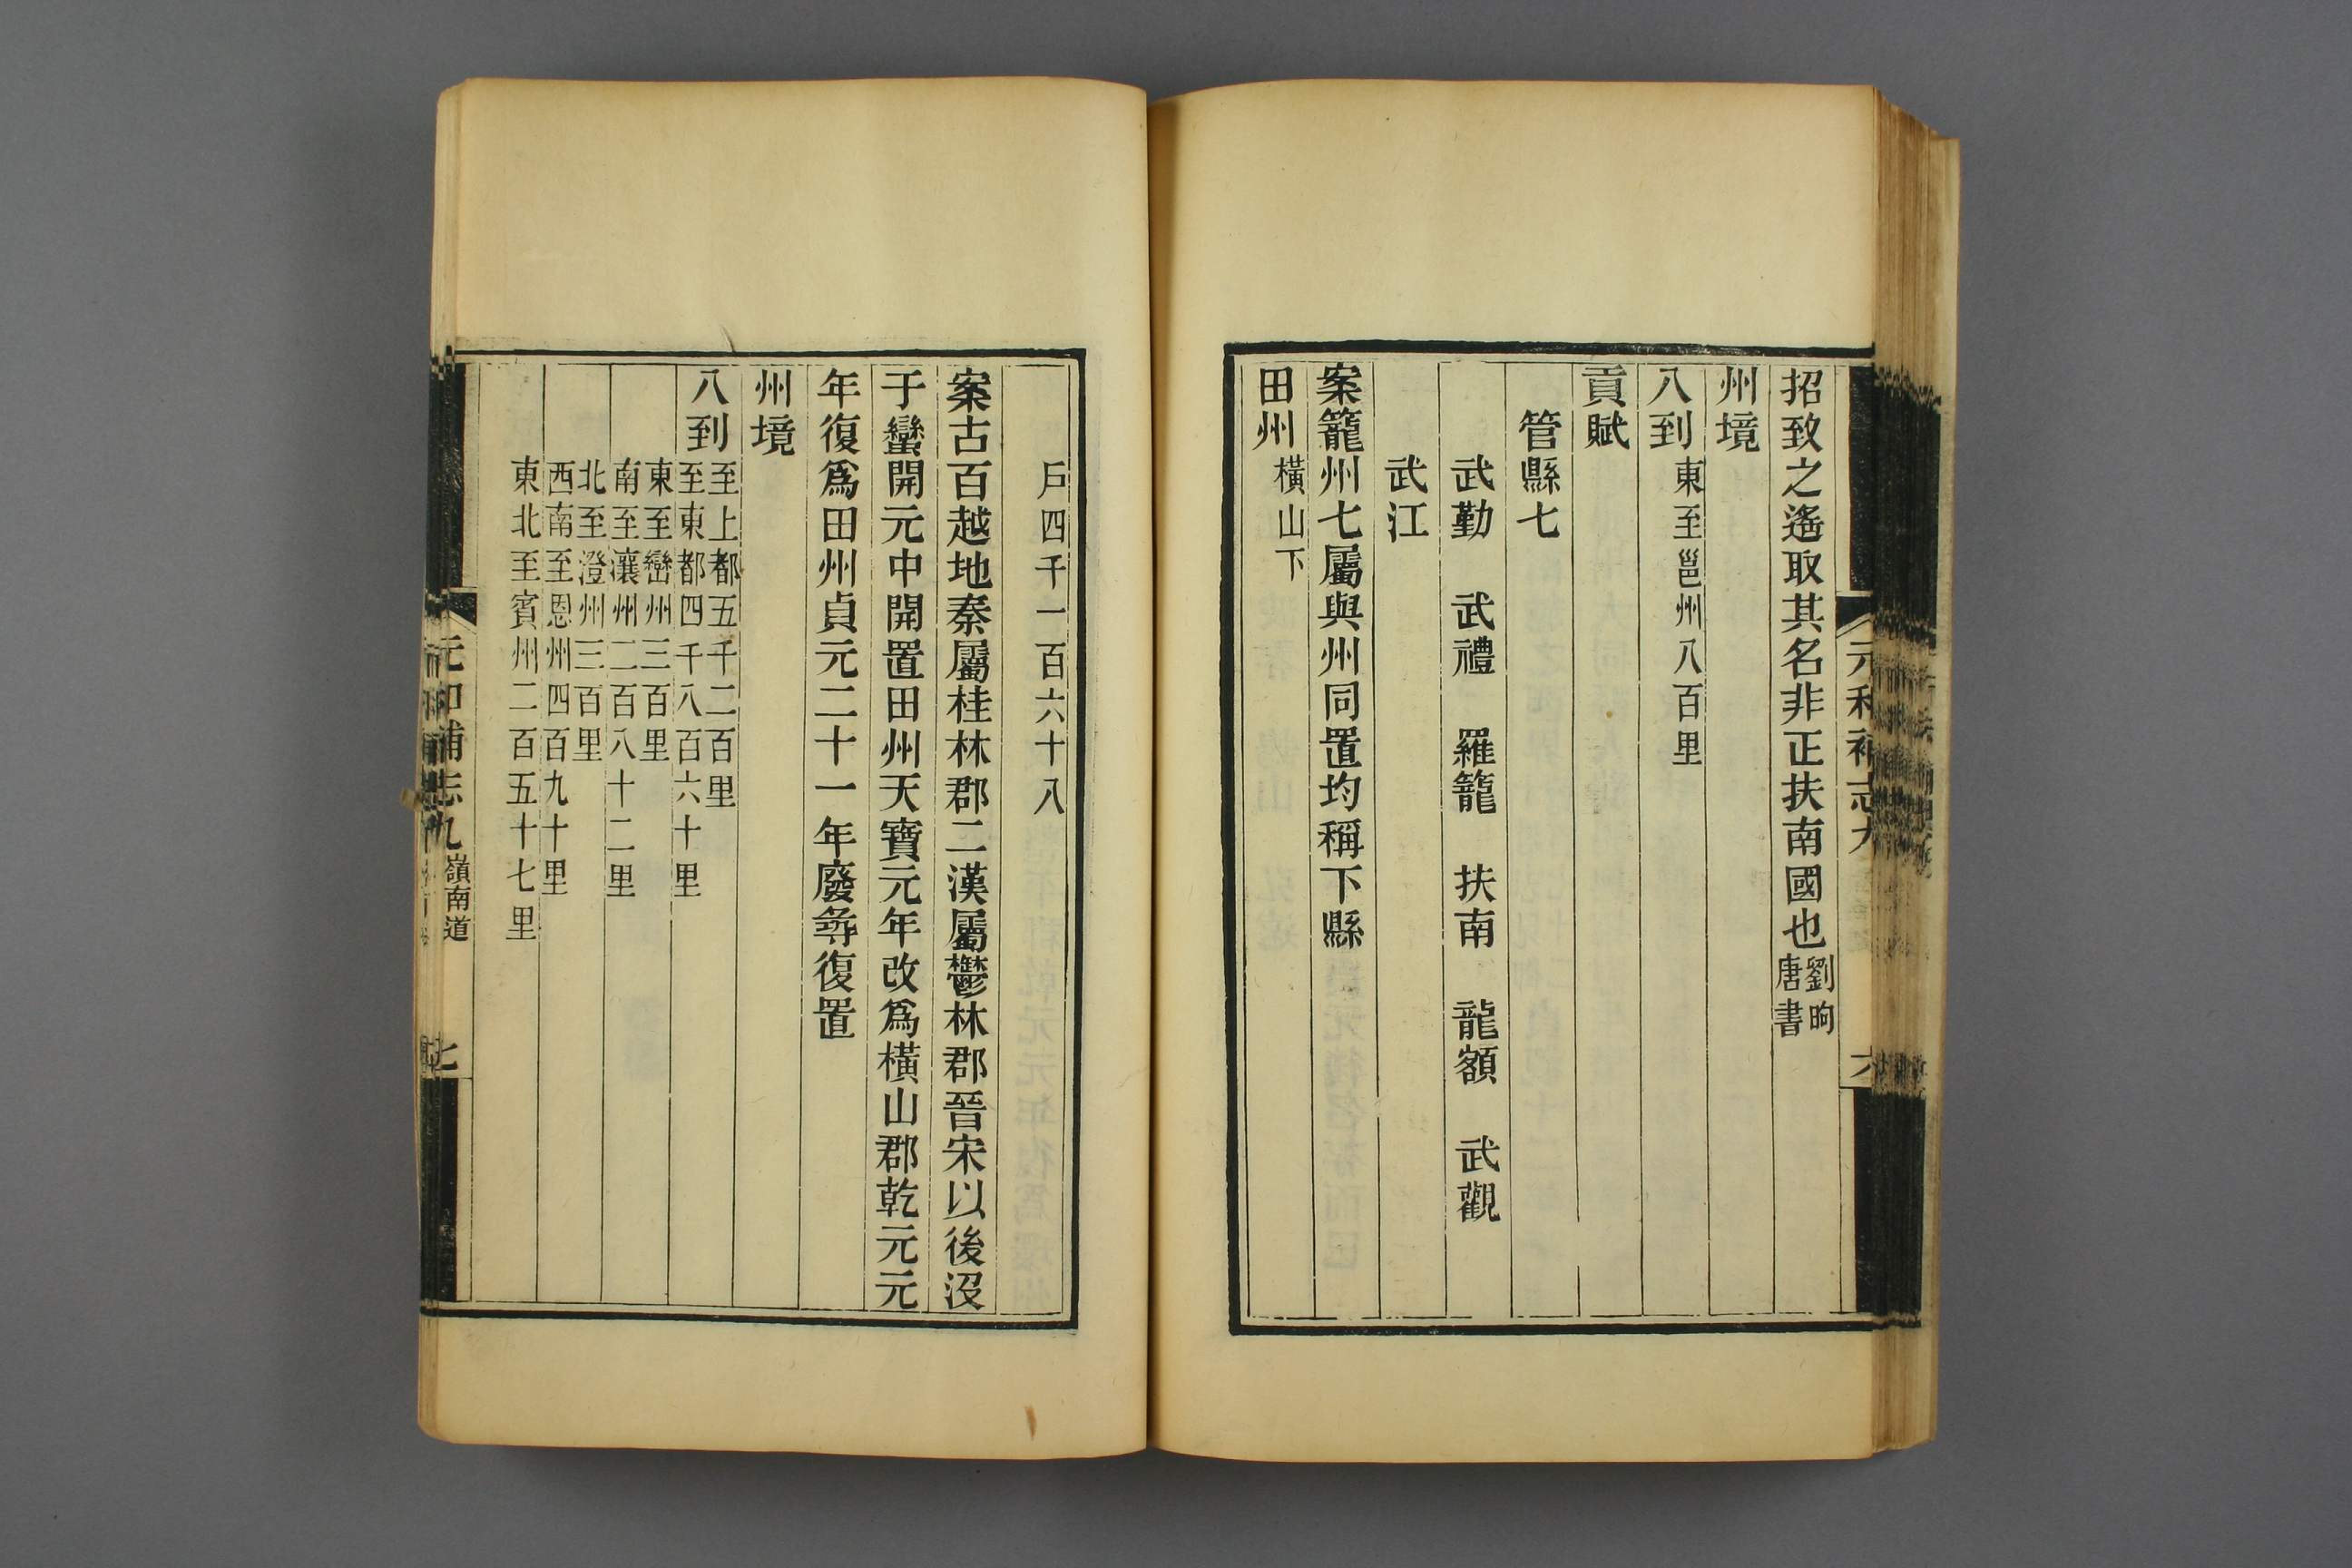 招致之遙取其名非正扶南國也劉昫唐書
州境
八到東至邕州八百里
貢賦
管縣七
武勤 武禮 羅籠 扶南 龍額 武觀
武江
案籠州七屬與州同置均稱下縣
田州橫山下
戶四千一百六十八
案古百越地秦屬桂林郡二漢屬鬱林郡晉宋以後沒
于蠻開元中開置田州天寶元年改爲橫山郡乾元元
年復爲田州貞元二十一年廢尋復置
州境
八到至上都五千二百里
至東都四千八百六十里
東至巒州三百里
南至瀼州二百八十二里
北至澄州三百里
西南至恩州四百九十里
東北至賓州二百五十七里
元和補志九 嶺南道 七